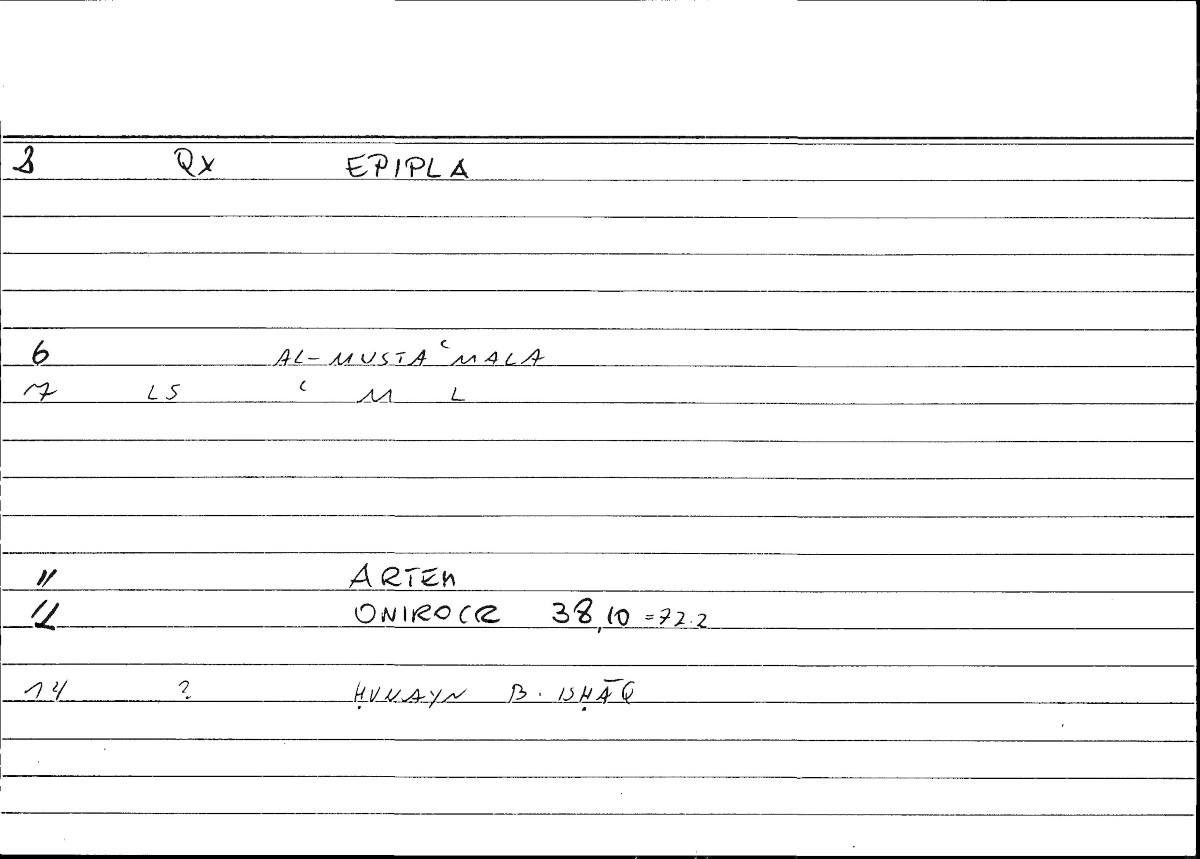 QX EPIPLA
6 AL-MUSTAʿMALA
7 LS ʿ M L
11 ARTEM
12 ONIROCR 38,10 =72.2
14 ? ḤUNAYN B. ISḤĀQ